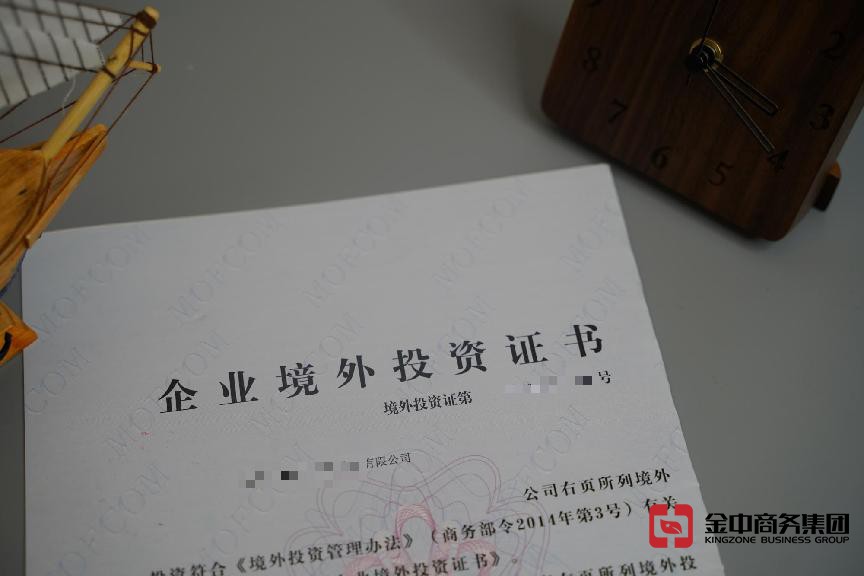 企业境外投资证书
境外投资证第 号
有限公司
公司右页所列境外
投资符合《境外投资管理办法》（商务部令2014年第3号）有关
业境外投资证书》。
页所列境外投
MOFCOM
MOFCOM
MOFCOM
MOFCOM
MOFCOM
8
7
6
5
4
3
2
金中商务集团
KINGZONE BUSINESS GROUP